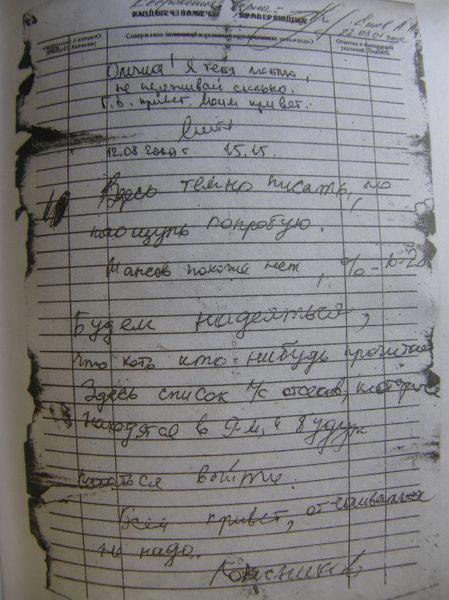 ПРОВЕРЯЮЩИХ
Олечка! Я тебя люблю,
не переживай сильно.
Г.В. привет. Моим привет.
Митя
12.08 2000 г. 15.15.
Здесь темно писать, но
наощупь попробую.
Шансов похоже нет, % – 10-20
Будем надеяться,
что хоть кто нибудь прочитает
Здесь список л/с отсеков, которые
находятся в 9-м, и будут
пытаться выйти.
Всем привет, отчаиваться
не надо.
Колесников